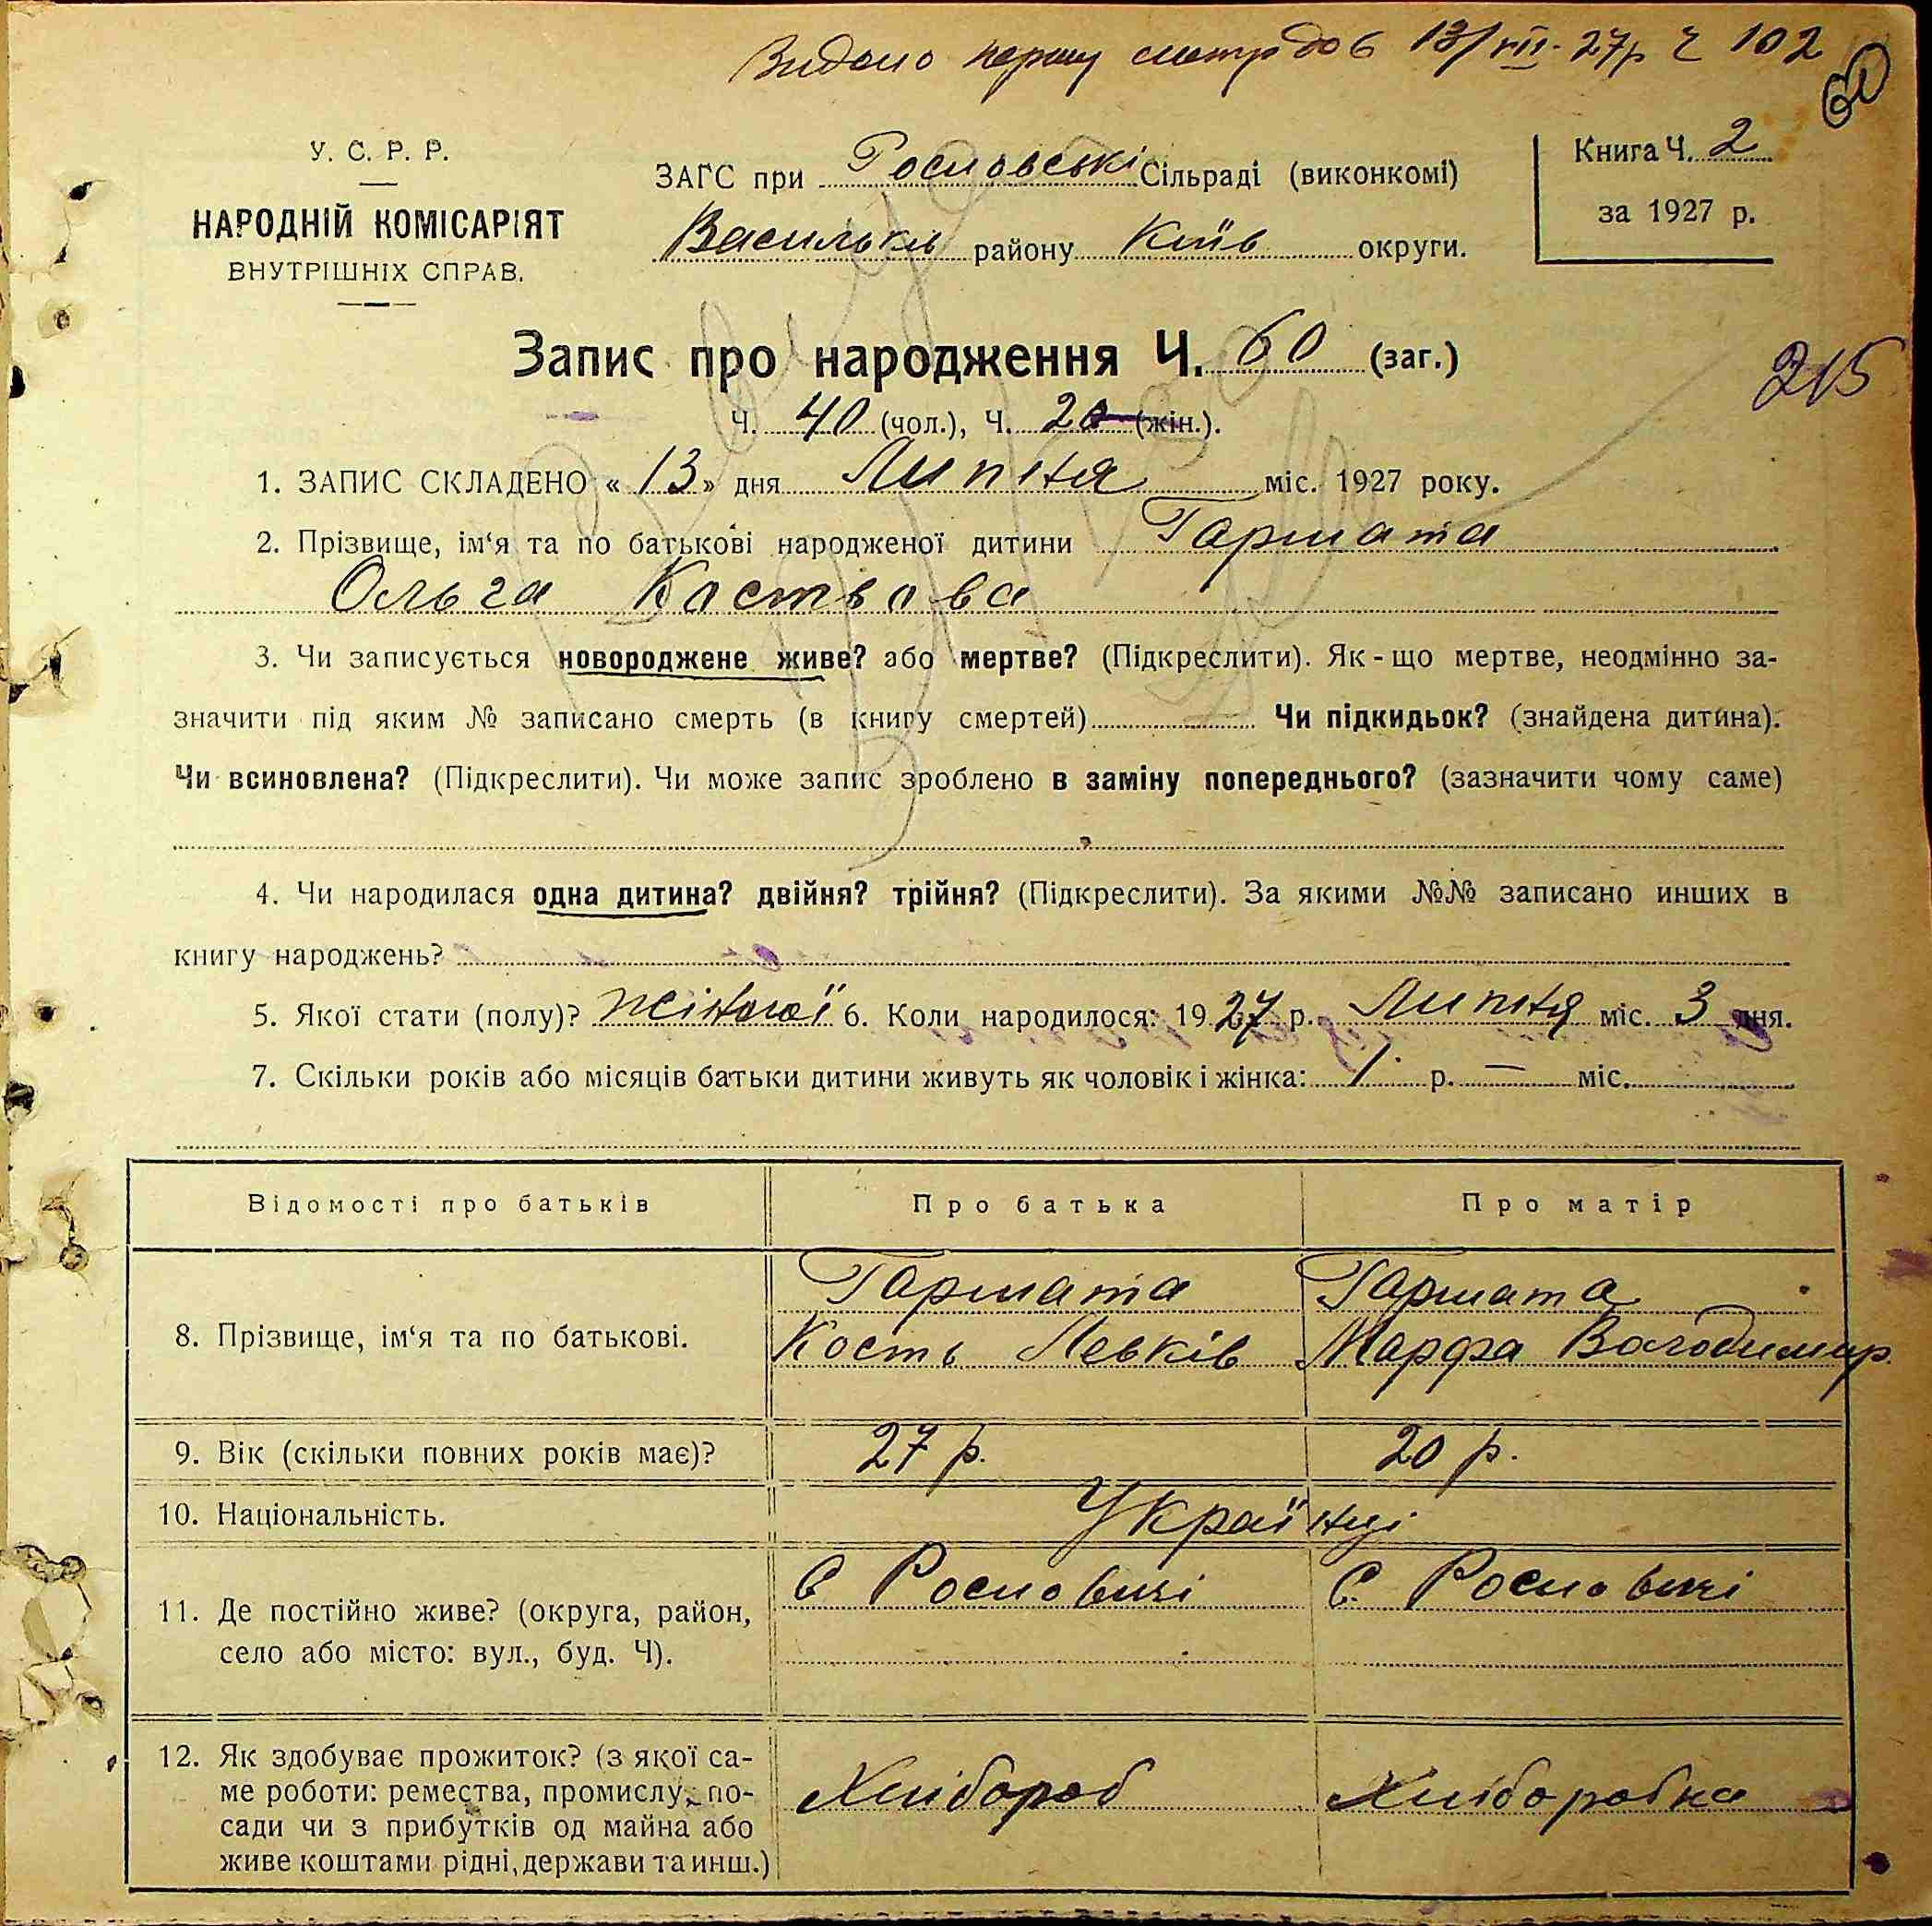 Видано першу 13/VII-27р Ч 102
60
У. С. Р. Р.
НАРОДНІЙ КОМІСАРІЯТ
ВНУТРІШНІХ СПРАВ.
ЗАГС при Рославські Сільраді (виконкомі)
Васильків району Київ округи.
Книга Ч. 2
за 1927 р.
Запис про народження Ч. 60 (заг.)
215
Ч. 40 (чол.), Ч. 20 (жін.).
1. ЗАПИС СКЛАДЕНО « 13 » дня Липня міс. 1927 року.
2. Прізвище, ім‘я та по батькові народженої дитини Гармата
Ольга Костьова
3. Чи записується новороджене живе? або мертве? (Підкреслити). Як-що мертве, неодмінно за-
значити під яким № записано смерть (в книгу смертей) Чи підкидьок? (знайдена дитина).
Чи всиновлена? (Підкреслити). Чи може запис зроблено в заміну попереднього? (зазначити чому саме)
4. Чи народилася одна дитина? двійня? трійня? (Підкреслити). За якими №№ записано инших в
книгу народжень?
5. Якої стати (полу)? Жіночої 6. Коли народилося: 1927 р. Липня міс. 3 дня.
7. Скільки років або місяців батьки дитини живуть як чоловік і жінка: 1 р. — міс.
Відомості про батьків Про батька Про матір
Гармата Гармата
8. Прізвище, ім‘я та по батькові. Кость Левків Марфа Володимир
9. Вік (скільки повних років має)? 27 р. 20 р.
10. Національність. Українці
11. Де постійно живе? (округа, район, С Рословичі С. Рословичі
село або місто: вул., буд. Ч).
12. Як здобуває прожиток? (з якої са-
ме роботи: ремества, промислу, по- Хлібороб Хліборобка
сади чи з прибутків од майна або
живе коштами рідні, держави та инш.)